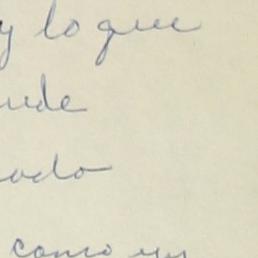 y lo que
ude
odo
como un